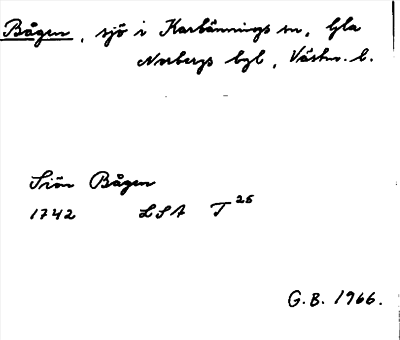 Bågen, sjö i Karbennings sn, Gla
Norbergs bgl, Västm. l.
Siön Bågen
1742 LSA T 25
G.B. 1966.